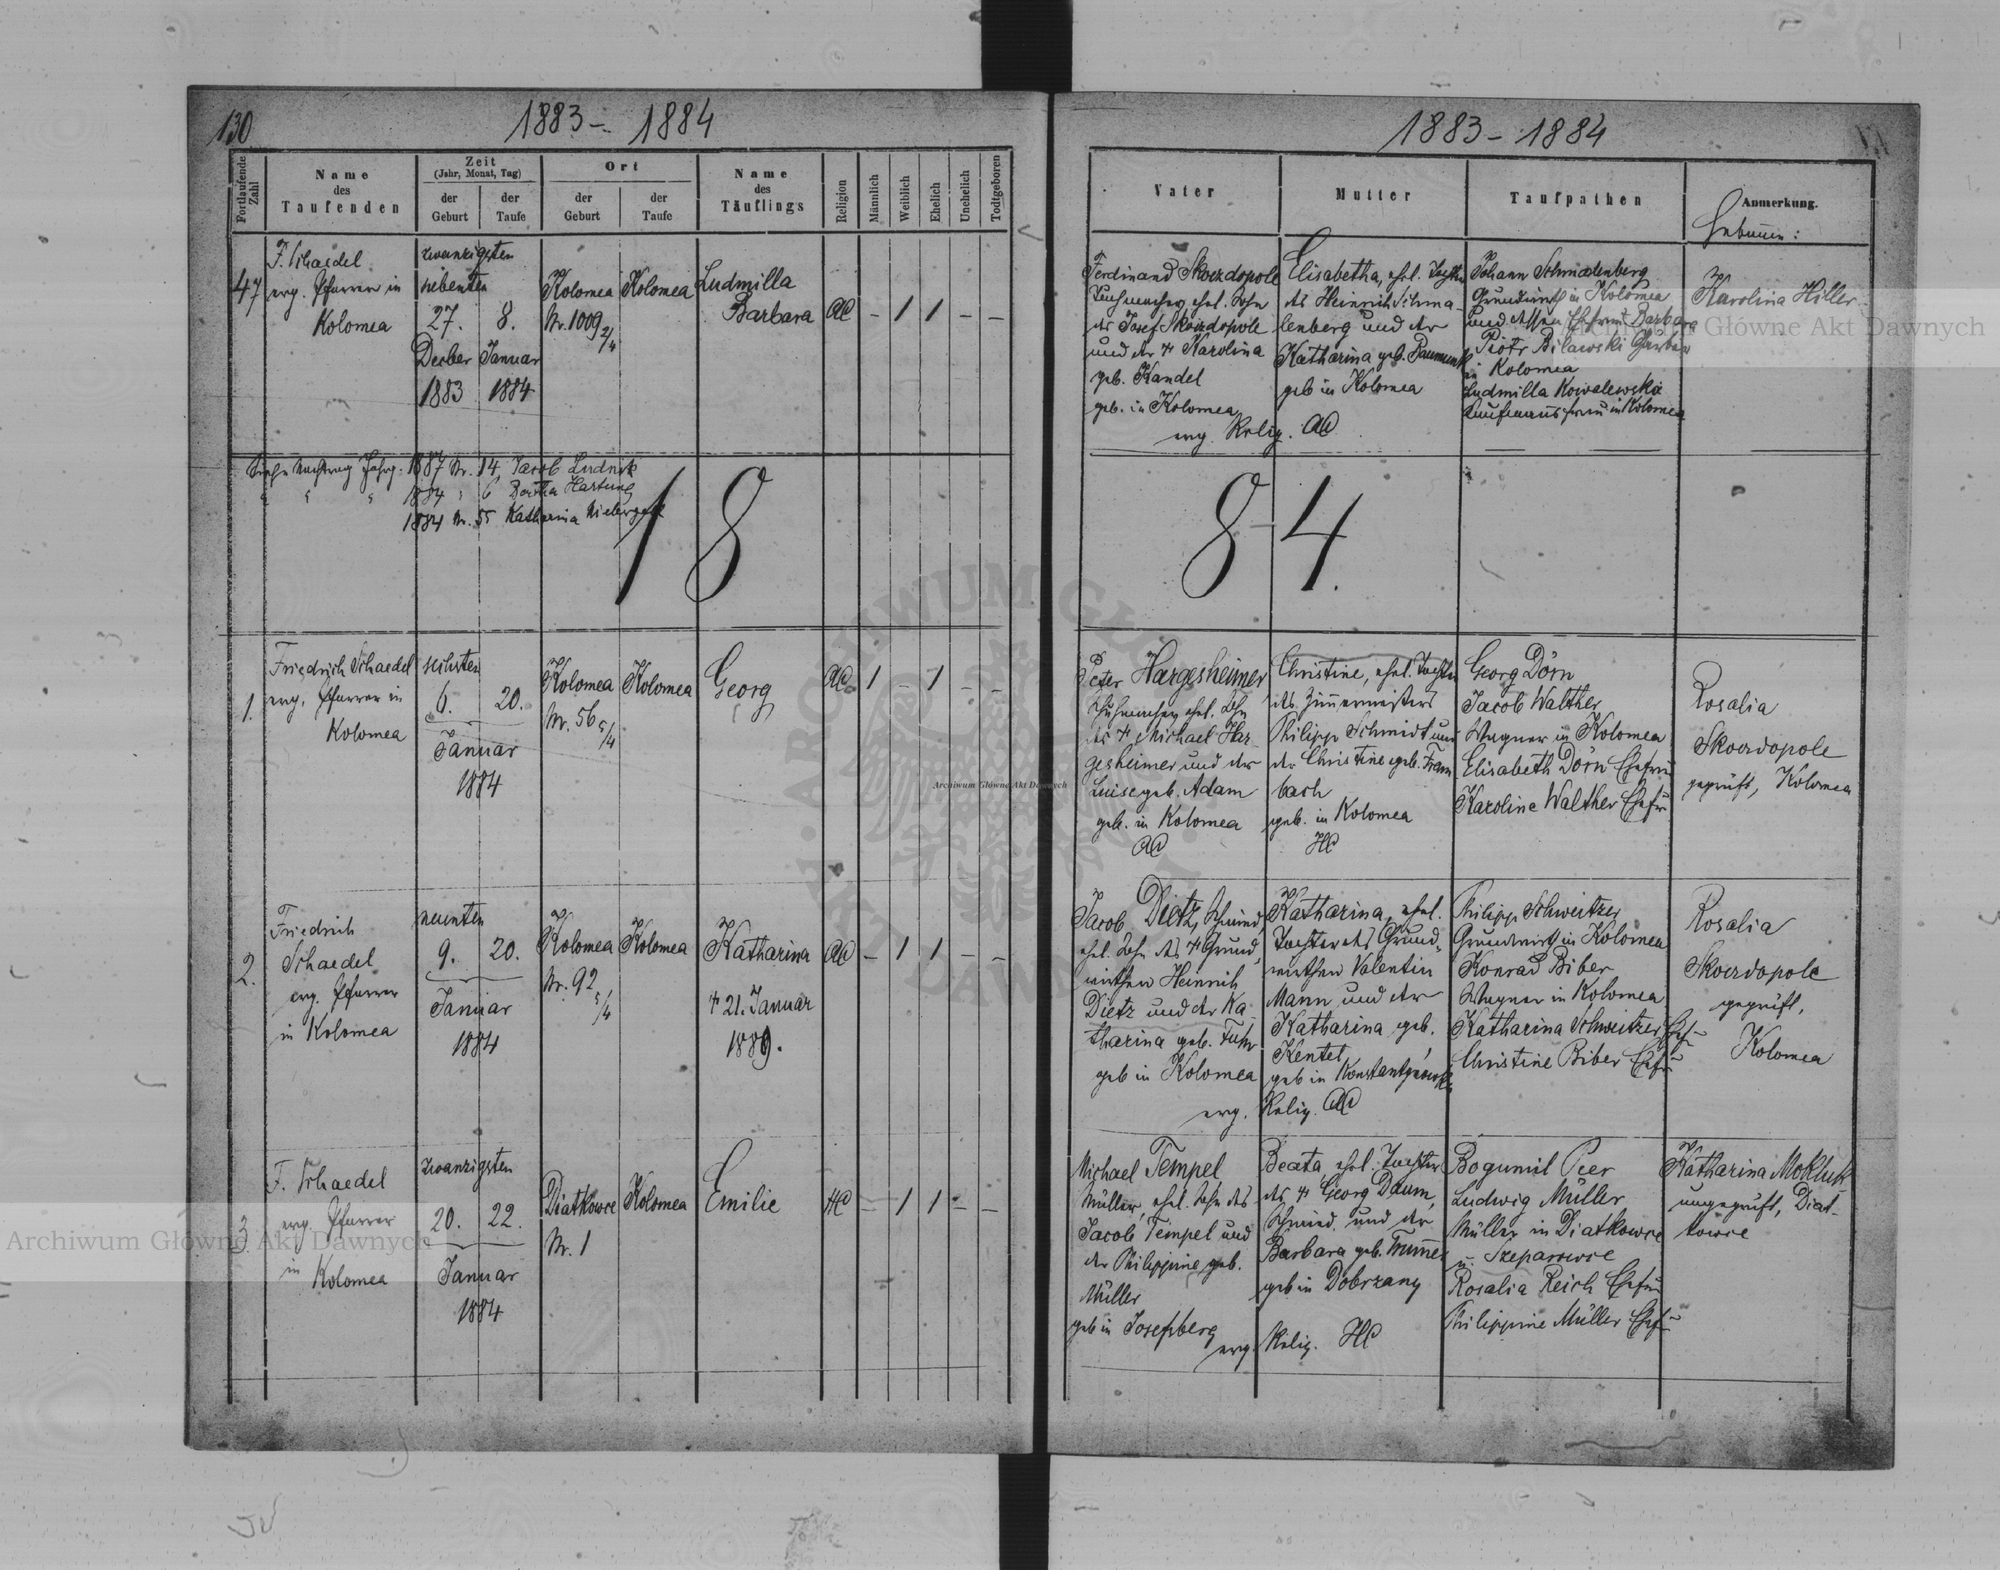 130
1883 – 1884
Portlaufende Zahl
Name
des
Taufenden
Zeit
(Jahr, Monat, Tag)
der
Geburt
der
Taufe
Ort
der
Geburt
der
Taufe
Name
des
Täuflings
Religion
Männlich
Weiblich
Ehelich
Unehelich
Todtgeboren
47
F. Schaedel
evg. Pfarrer in
Kolomea
zwanzigsten
siebenten
27. 8.
Dezber Januar
1883 1884
Kolomea
Nr. 1009 2/4
Kolomea
Ludmilla
Barbara
AC – 1 1 – –
Siehe Nachtrag Jahrg. 1887 Nr. 14, Jacob Ludnik
" " " 1884 " 6 Bertha Hartung
1884 Nr. 55 Katharina
18
1.
Friedrich Schaedel
evg. Pfarrer in
Kolomea
sechsten
6. 20.
Januar
1884
Kolomea
Nr. 56 5/4
Kolomea
Georg
AC 1 – 1 – –
2.
Friedrich
Schaedel
evg. Pfarrer
in Kolomea
neunten
9. 20.
Januar
1884
Kolomea
Nr. 92 5/4
Kolomea
Katharina
+ 21. Januar
1889.
AC – 1 1 – –
3
F. Schaedel
evg. Pfarrer
in
Kolomea
zwanzigsten
20. 22.
Januar
1884
Diatkowce
Nr. 1
Kolomea
Emilie
HC – 1 1 – –
1883 – 1884
Vater
Mutter
Taufpathen
Anmerkung.
Hebamme:
Ferdinand Skwerdopole
Tuchmacher, ehel. Sohn
des Josef Skwerdopole
und der + Karolina
geb. Kandel
geb. in Kolomea
Elisabetha, ehel. Tochter
des Heinrich Schma-
lenberg und der
Katharina geb. Baumunk
geb in Kolomea
evg. Relig. AC
Johann Schmalenberg
Grundwirth in Kolomea
und dessen Ehefrau Barbara
Piotr Bilawski Gerber
in Kolomea
Ludmilla Kowalewska
Kaufmannsfrau in Kolomea
Karolina Hiller
84.
Peter Hargesheimer
Schuhmacher ehel. Sohn
des + Michael Har-
gesheimer und der
Luise geb. Adam
geb. in Kolomea
AC
Christine, ehel. Tochter
des Zimmermeisters
Philipp Schmidt und
der Christine geb. Fram
bach
geb. in Kolomea
HC
Georg Dörn
Jacob Walther
Wagner in Kolomea
Elisabeth Dörn Ehefrau
Karoline Walther Ehefr
Rosalia
Skwerdopole
geprüft, Kolomea
Jacob Dietz, Schmied,
ehel. Sohn des + Grund
wirthen Heinrich
Dietz und der Ka-
tharina geb. Fuhr
geb in Kolomea
Katharina, ehel.
Tochter des Grund-
wirthen Valentin
Mann und der
Katharina, geb.
Kentel
geb in
evg. Relig. AC
Philipp Schweitzer
Grundwirth in Kolomea
Konrad Biber
Wagner in Kolomea
Katharina Schweitzer Ehefr
Christine Biber Ehefr
Rosalia
Skwerdopole
geprüft,
Kolomea
Michael Tempel
Müller, ehel. Sohn des
Jacob Tempel und
der Philippine geb.
Müller
geb in Josefsberg
Beata ehel. Tochter
des + Georg Daum,
Schmied und der
Barbara geb.
geb in Dobrzany
evg. Relig. HC
Bogumil Peer
Ludwig Müller
Müller in Diatkowce
u. Szeparowce
Rosalia Reich Ehefr
Philippine Müller Ehefr
Katharina Mokluk
ungeprüft, Diat-
kowce
Archiwum Główne Akt Dawnych
Archiwum Główne Akt Dawnych
Archiwum Główne Akt Dawnych